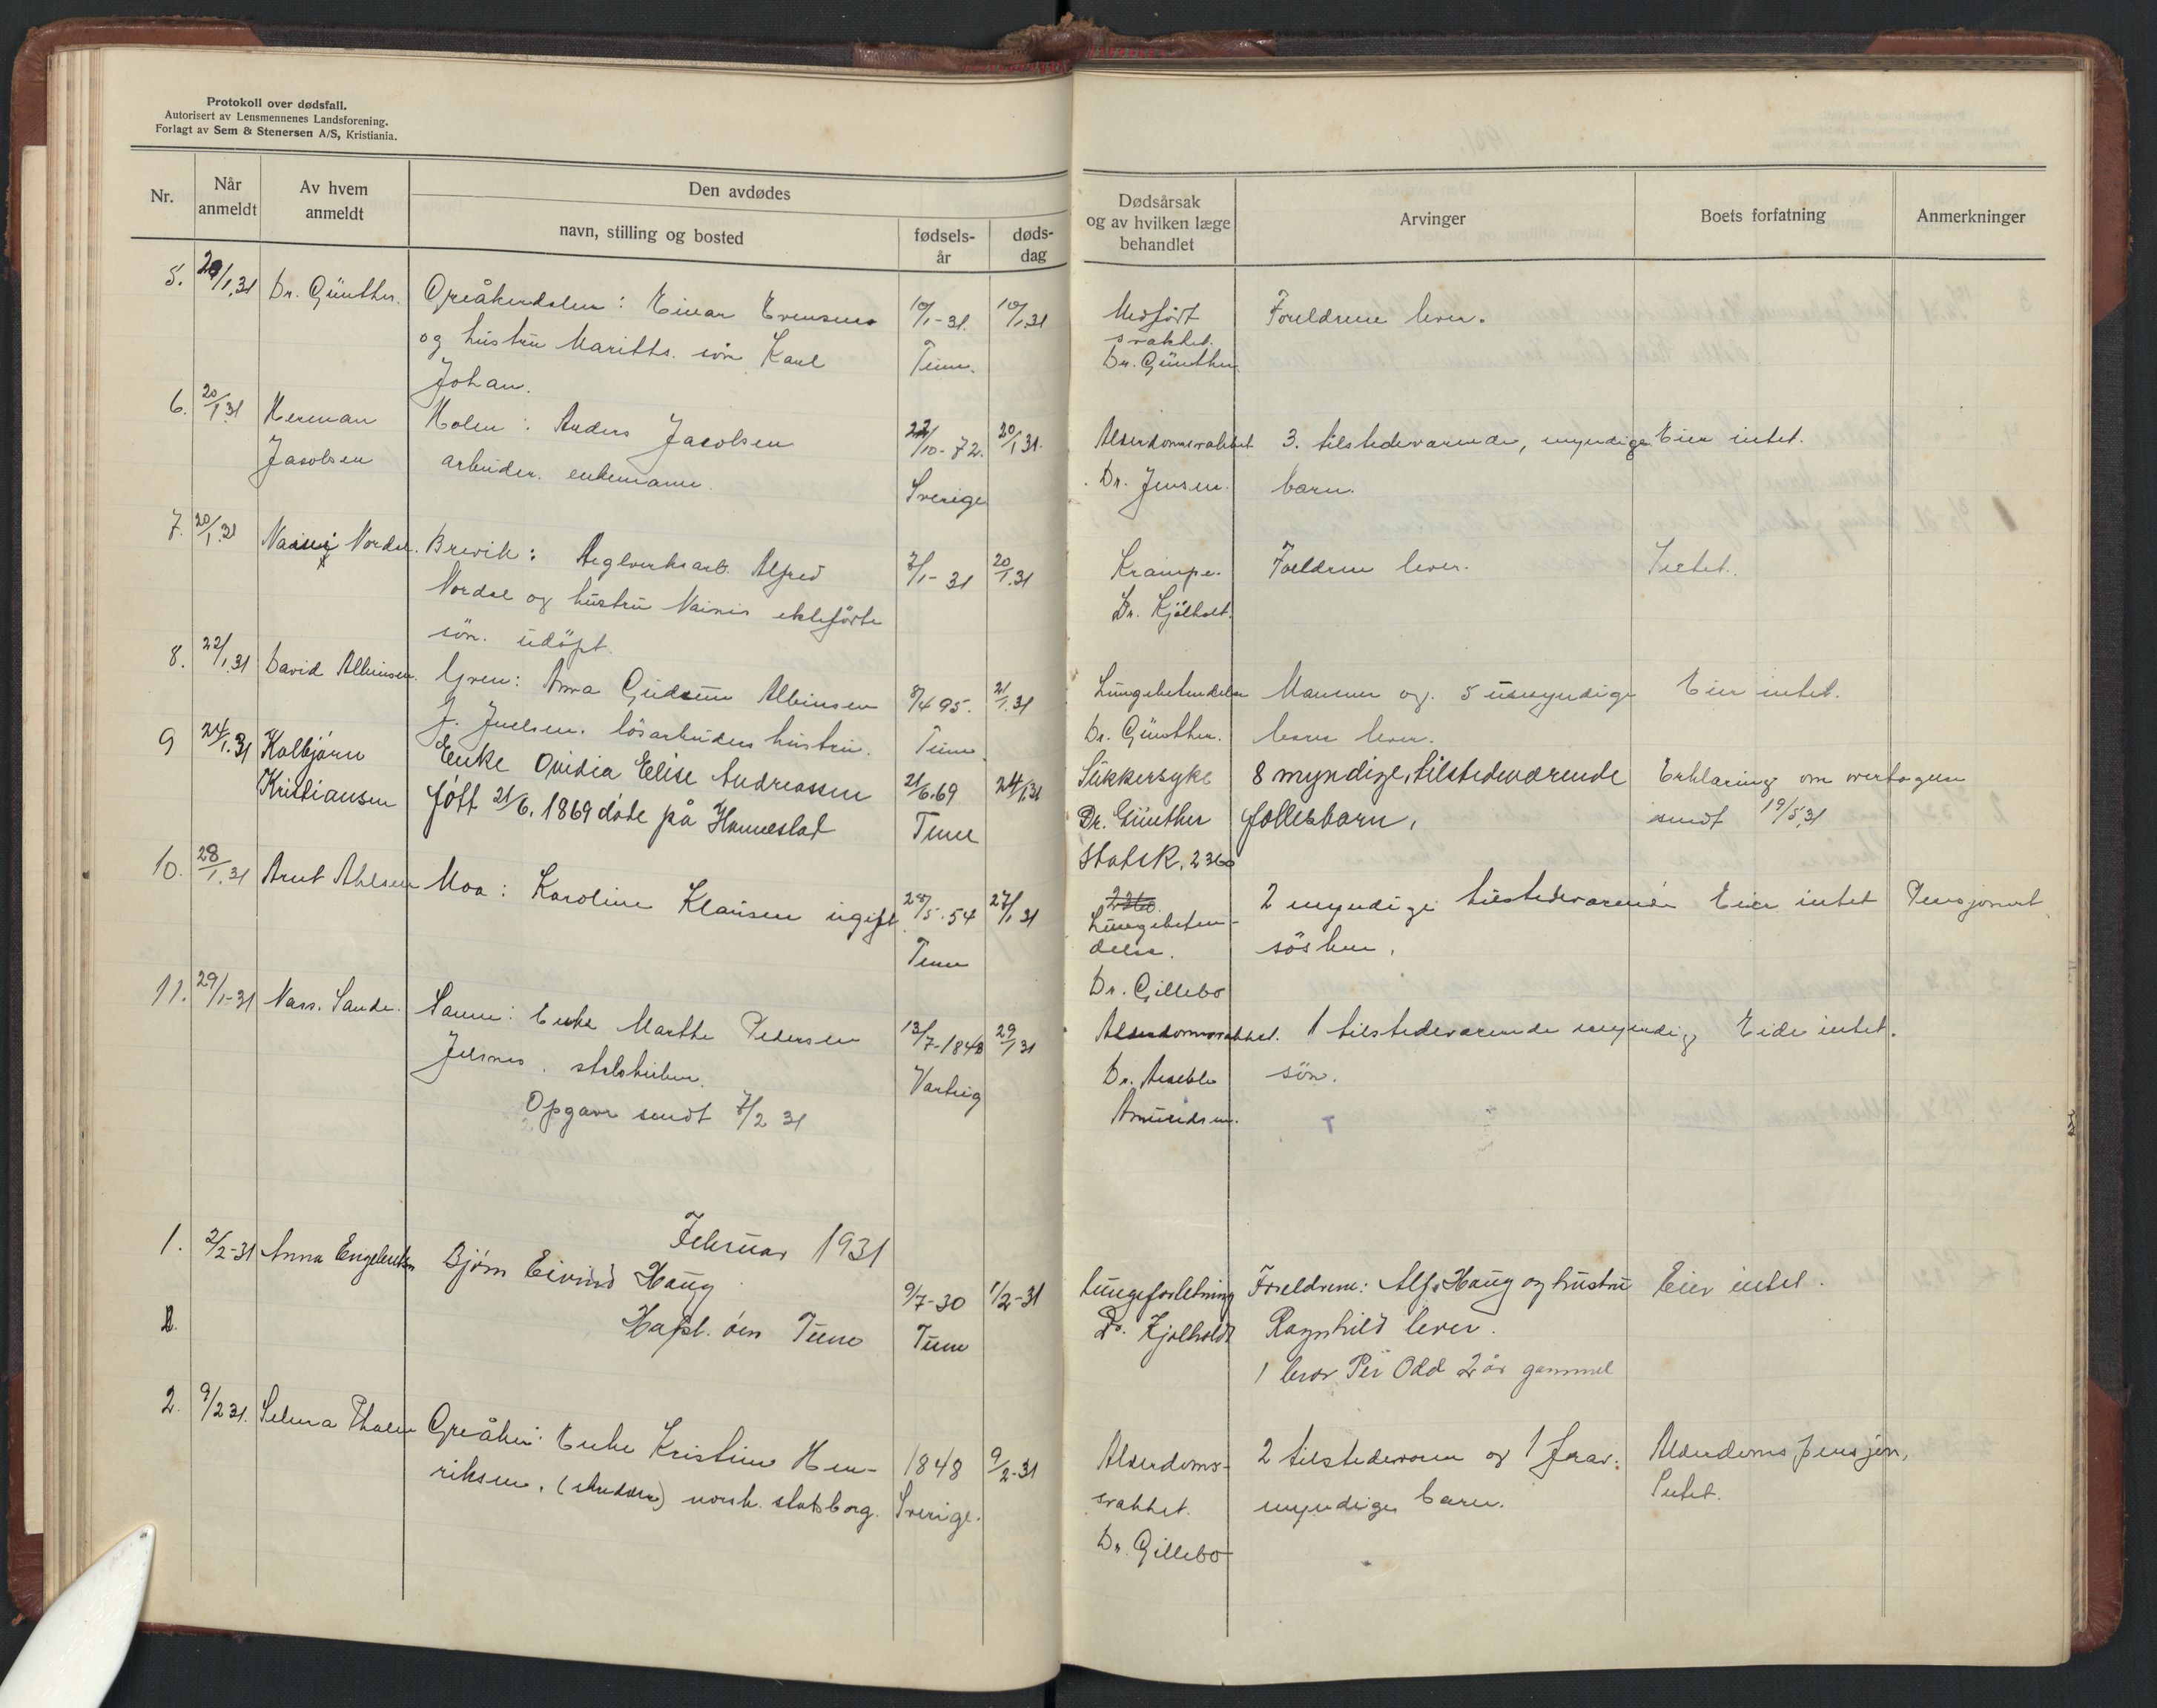 Protokoll over dødsfall.
Autorisert av Lensmennenes Landsforening.
Forlagt av Sem & Stenersen A/S, Kristiania.
Nr.
Når anmeldt
Av hvem anmeldt
Den avdødes
navn, stilling og bosted
fødsels-år
døds-dag
Dødsårsak
og av hvilken læge
behandlet
Arvinger
Boets forfatning
Anmerkninger
5. 20/1.31 Dr. Günther. Greåkerdalen: Einar Evensens 10/1-31. 10/1.31 Medfødt Foreldrene lever.
og hustru Mariths. søn Karl Tune. svakhet.
Johan. Dr. Günther.
6. 20/1.31 Herman Holen: Anders Jacobsen 22/10-72. 20/1.31. Alderdomssvakhet 3. tilstedeværende, myndige Eier intet.
Jacobsen arbeider. enkemann. Sverige Dr. Jensen. barn.
7. 20/1.31 Nordal. Brevik: Teglverksarb. Alfred 7/1-31 20/1.31 Krampe. Foreldrene lever. Intet.
Nordal og hustru ektefødte Dr. Kjølholt.
søn. udøpt.
8. 22/1.31 David Albinsen. Gren: Anna Gudrun Albinsen 8/4 95. 21/1.31 Lungebetendelse Mannen og 5 umyndige Eier intet.
f. Juelsen. løsarbeiders hustru. Tune Dr. Günther. barn lever.
9 24/1.31 Kolbjørn Enke Ovidia Elise Andreassen 21/6.69 24/1.31 Sukkersyke 8 myndige, tilstedeværende Erklæring om overtagelse
Kristiansen født 21/6.1869 døde på Hannestad Tune Dr. Günther fellesbarn. sendt 19/5.31
Statsk. 2360
10. 28/1.31 Arnt Ahlsen Moa: Karoline Klausen ugift 28/5.54 27/1 31 2360 2 myndige tilstedeværende Eier intet Pensjonert
Tune Lungebeten-
delse. søsken.
Dr. Gillebo
11. 29/1-31 Sande. Sanne: Enke Marthe Pedersen 13/7-1848 29/1 31 Alderdomssvakhet. 1 tilstedeværende myndig Eide intet.
Varteig Dr. søn.
Opgave sendt 7/2 31 Amundsen.
T
Februar 1931
1. 2/2-31 Anna Engebretsen Bjørn Eivind Haug 9/7-30 1/2-31 Lungefortetning Foreldrene: Alf Haug og hustru Eier intet.
2. Hafsl. øen Tune Tune Dr. Kjølholdt Ragnhild lever.
1 bror Per Odd 2 år gammel
2. 9/2 31. Selma Thalen Greåker: Enke Kristine Hen- 1848 9/2-31 Alderdoms- 2 tilstedeværen og 1 frav. Alderdoms pensjon,
riksen. norsk. statsborg. Sverige. svakhet. myndige barn. Intet.
Dr. Gillebo